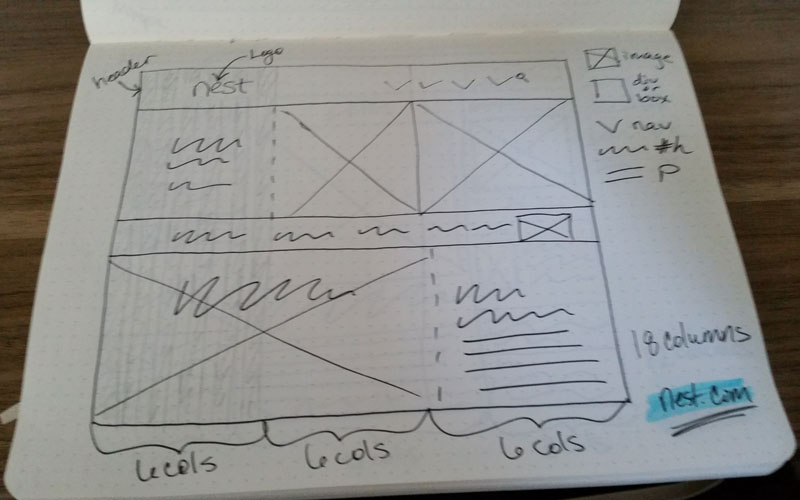 header
Logo
nest
image
div
or
box
nav
#h
P
18 columns
nest.com
6 cols
6 cols
6 cols